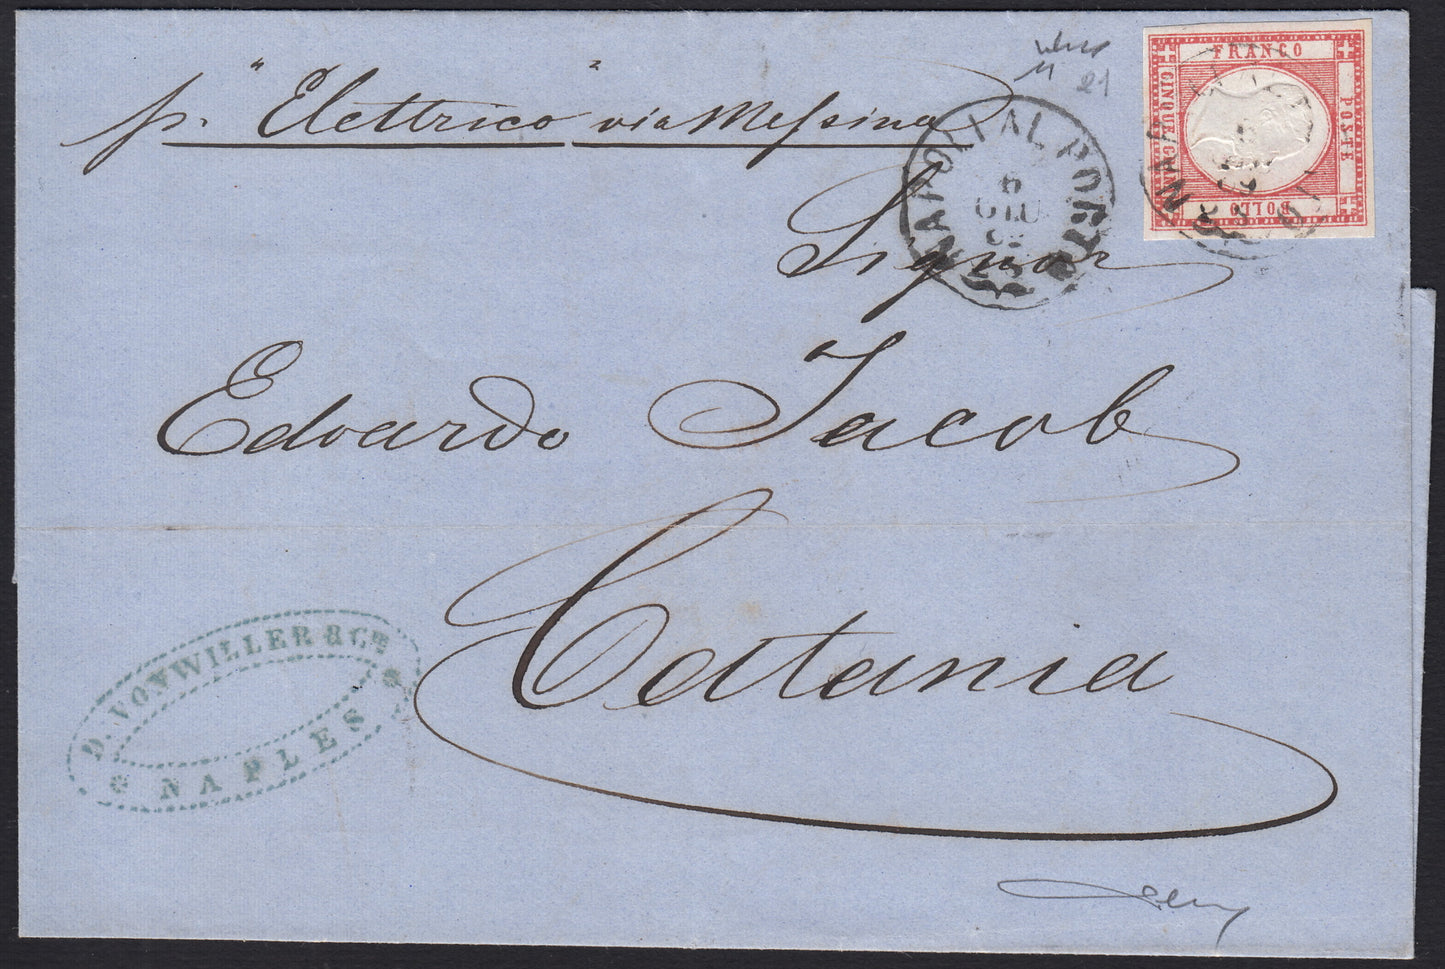 p. "Elettrico" via Messina
Signor
Edoardo Jacob
Catania
NAPOLI AL PORTO
6
GIU
62
FRANCO
POSTE
BOLLO
CINQUE GRANA
NAP
61
D. VONWILLER & Cie
NAPLES
21